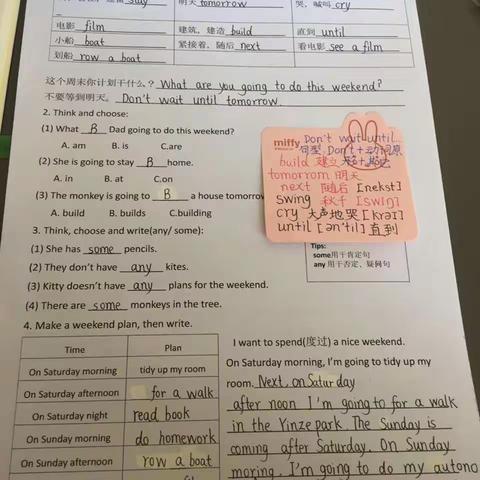 stay
明天 tomorrow
哭，喊叫 cry
电影 film
建筑，建造 build
直到 until
小船 boat
紧接着，随后 next
看电影 see a film
划船 row a boat
这个周末你计划干什么？ What are you going to do this weekend?
不要等到明天。 Don't wait until tomorrow.
2. Think and choose:
(1) What B Dad going to do this weekend?
A. am B. is C.are
(2) She is going to stay B home.
A. in B. at C.on
(3) The monkey is going to B a house tomorrow
A. build B. builds C.building
miffy Don't wait until
句型: Don't + 动词原
build 建立
tomorrom 明天
next 随后 [nekst]
swing 秋千 [swiŋ]
cry 大声地哭 [kraɪ]
until [ən'til] 直到
3. Think, choose and write(any/ some):
(1) She has some pencils.
(2) They don't have any kites.
(3) Kitty doesn't have any plans for the weekend.
(4) There are some monkeys in the tree.
Tips:
some用于肯定句
any 用于否定、疑问句
4. Make a weekend plan, then write.
Time Plan
On Saturday morning tidy up my room
On Saturday afternoon for a walk
On Saturday night read book
On Sunday morning do homework
On Sunday afternoon row a boat
I want to spend(度过) a nice weekend.
On Saturday morning, I'm going to tidy up my
room. Next, on Satur day
after noon I'm going to for a walk
in the Yinze park. The Sunday is
coming after Saturday. On Sunday
morning, I'm going to do my autono